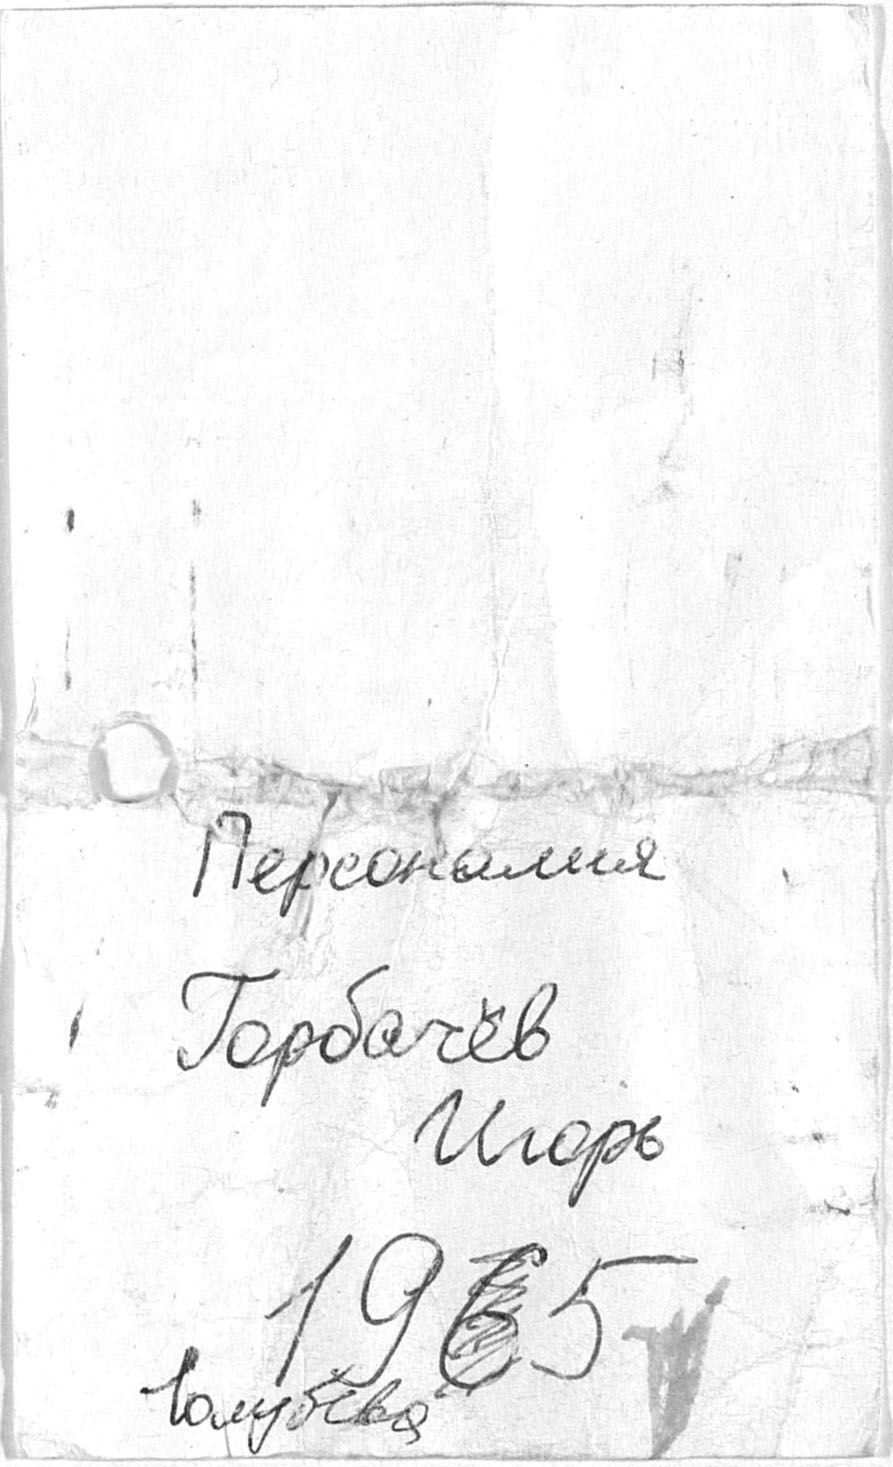 Персоналия
Горбачёв
Игорь
1965
Голубева